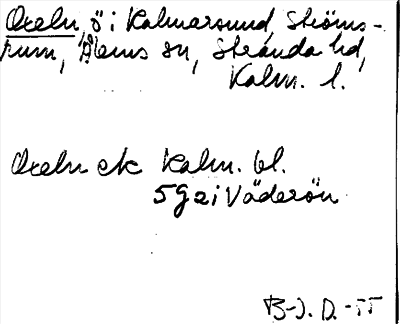 Oxeln, ö i Kalmarsund, Ströms-
rum, Ålems sn, Stranda hd,
Kalm. l.
Oxeln ek Kalm. bl.
5 G 2 i Väderön
B-J. D. -55